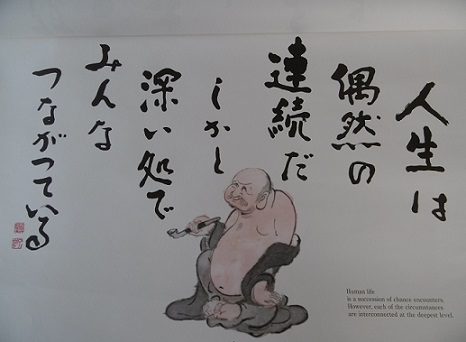 人生は
偶然の
連続だ
しかと
深い処で
みんな
つながっている
Human life
is a succession of chance encounters.
However, each of the circumstances
are interconnected at the deepest level.